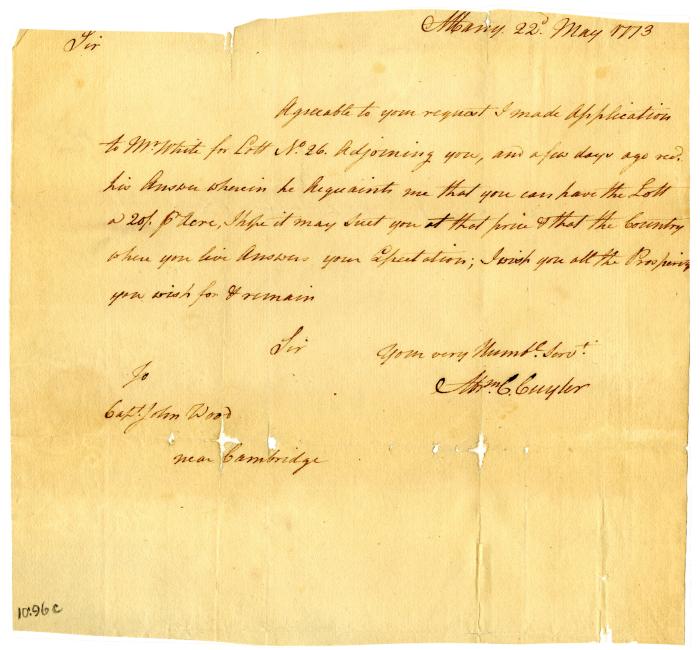 Albany. 22d. May 1773
Sir
Agreeable to your request I made Application
to Mr White for Lott No. 26. Adjoining you, and a few days ago recd.
his Answer wherein he Acquaints me that you can have the Lott
a 20/. pr Acre, I hope it may suet you at that price & that the Country
where you live Answers your Expectation; I wish you all the Prosperity
you wish for & remain
Sir
Your very Humbl. Servt.
Abrm. C. Cuyler
To
Capt. John Wood
near Cambridge
10:96c